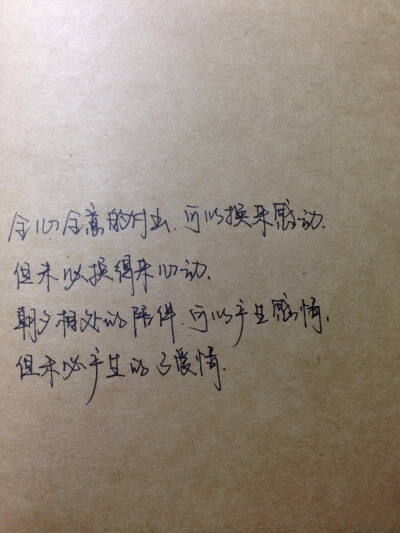 全心全意的付出.可以换来感动.
但未必换得来心动.
朝夕相处的陪伴.可以产生感情.
但未必产生的了爱情.